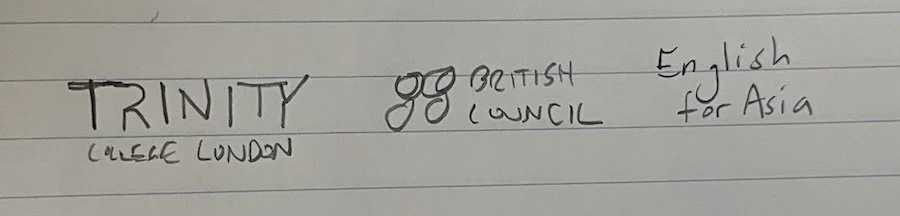 TRINITY
COLLEGE LONDON
BRITISH
COUNCIL
English
for Asia